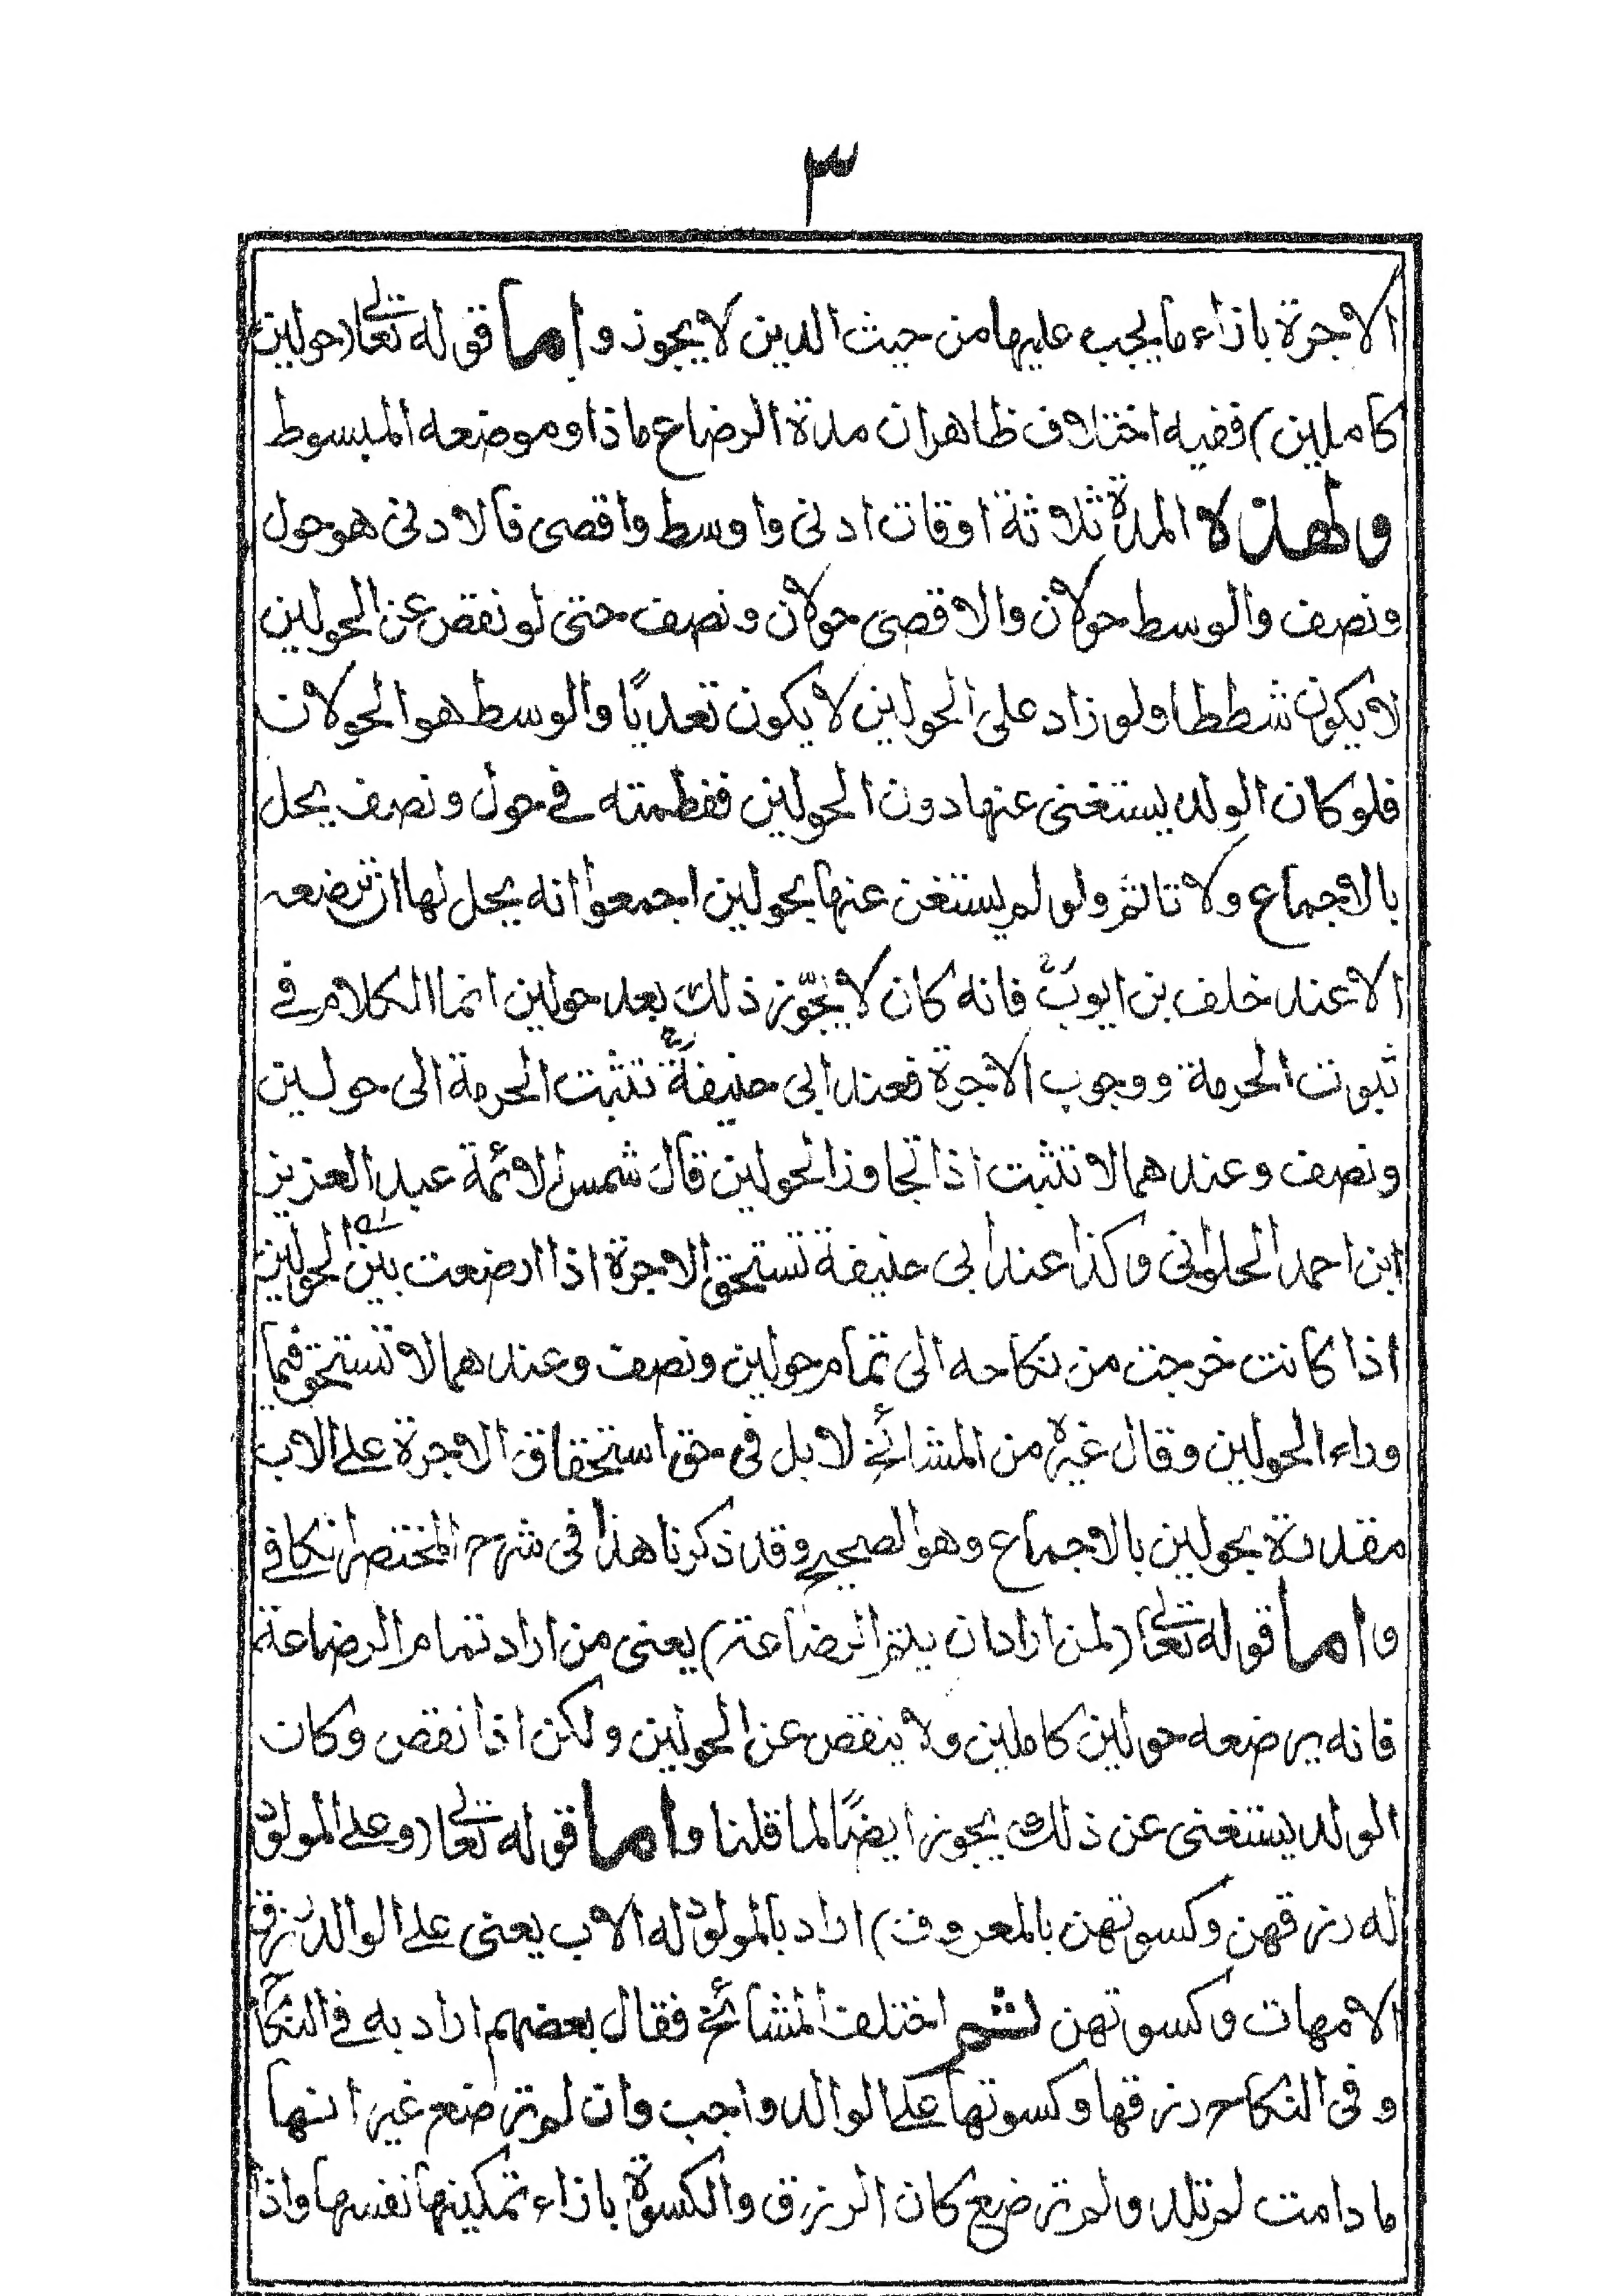 ٣
الاجرة بازاء ما يجب عليها من حيث الدين لا يجوز واما قوله تعالى (حولين
كاملين) ففيه اختلاف ظاهر ان مدة الرضاع ماذا وموضعه المبسوط
ولهذه المدة ثلاثة اوقات ادنى واوسط واقصى فالادنى هو حول
ونصف والوسط حولان والاقصى حولان ونصف حتى لو نقص عن الحولين
لا يكون شططا ولو زاد على الحولين لا يكون تعديًا والوسط هو الحولان
فلو كان الولد يستغنى عنها دون الحولين ففطمته في حول ونصف يحل
بالاجماع ولا تاثم ولو لم يستغن عنها بحولين اجمعوا انه يحل لها ان ترضعه
الا عند خلف بن ايوبؒ فانه كان لا يجوّز ذلك بعد حولين انما الكلام في
ثبوت الحرمة ووجوب الاجرة فعند ابى حنيفةؒ تثبت الحرمة الى حولين
ونصف وعندهما لا تثبت اذا تجاوز الحولين قال شمس الائمة عبد العزيز
ابن احمد الحلوانى وكذا عند ابى حنيفة تستحق الاجرة اذا ارضعت بين الحولين
اذا كانت خرجت من نكاحه الى تمام حولين ونصف وعندهما لا تستحق فيما
وراء الحولين وقال غيره من المشائخ لا بل فى حق استحقاق الاجرة على الاب
مقدرة بحولين بالاجماع وهو الصحيح وقد ذكرنا هذا فى شرح المختصر الكافى
واما قوله تعالى (لمن اراد ان يتم الرضاعة) يعنى من اراد تمام الرضاعة
فانه يرضعه حولين كاملين ولا ينقص عن الحولين ولكن اذا نقص وكان
الولد يستغنى عن ذلك يجوز ايضًا لما قلنا واما قوله تعالى (وعلى المولود
له رزقهن وكسوتهن بالمعروف) اراد بالمولود له الاب يعنى على الوالد رزق
الامهات وكسوتهن ثم اختلف المشائخ فقال بعضهم اراد به في النكاح
وفى النكاح رزقها وكسوتها على الوالد واجب وان لم ترضع غير انها
ما دامت لم تلد ولم ترضع كان الرزق والكسوة بازاء تمكينها نفسها واذا